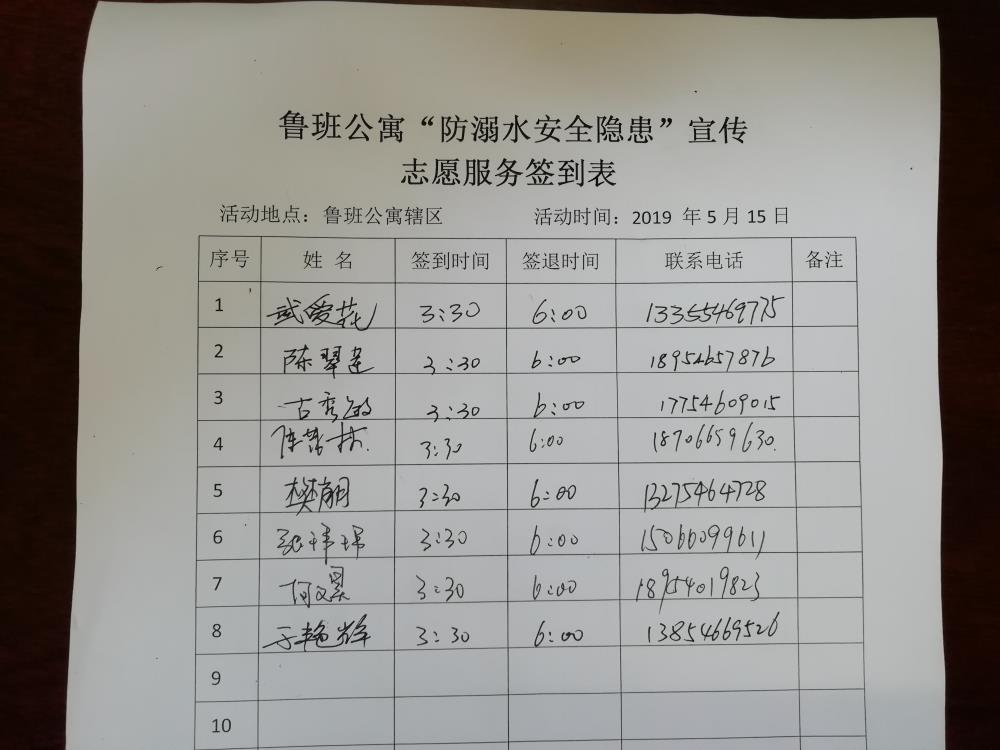 鲁班公寓“防溺水安全隐患”宣传
志愿服务签到表
活动地点：鲁班公寓辖区 活动时间：2019 年 5 月 15 日
序号 姓 名 签到时间 签退时间 联系电话 备注
1 武爱花 3:30 6:00 13355469775
2 陈翠莲 3:30 6:00 18954657876
3 古秀敏 3:30 6:00 17754609015
4 3:30 6:00 18706659630
5 樊朝 3:30 6:00 13275464728
6 3:30 6:00 15066099611
7 何文昊 3:30 6:00 18954019823
8 于艳辉 3:30 6:00 13854669526
9
10